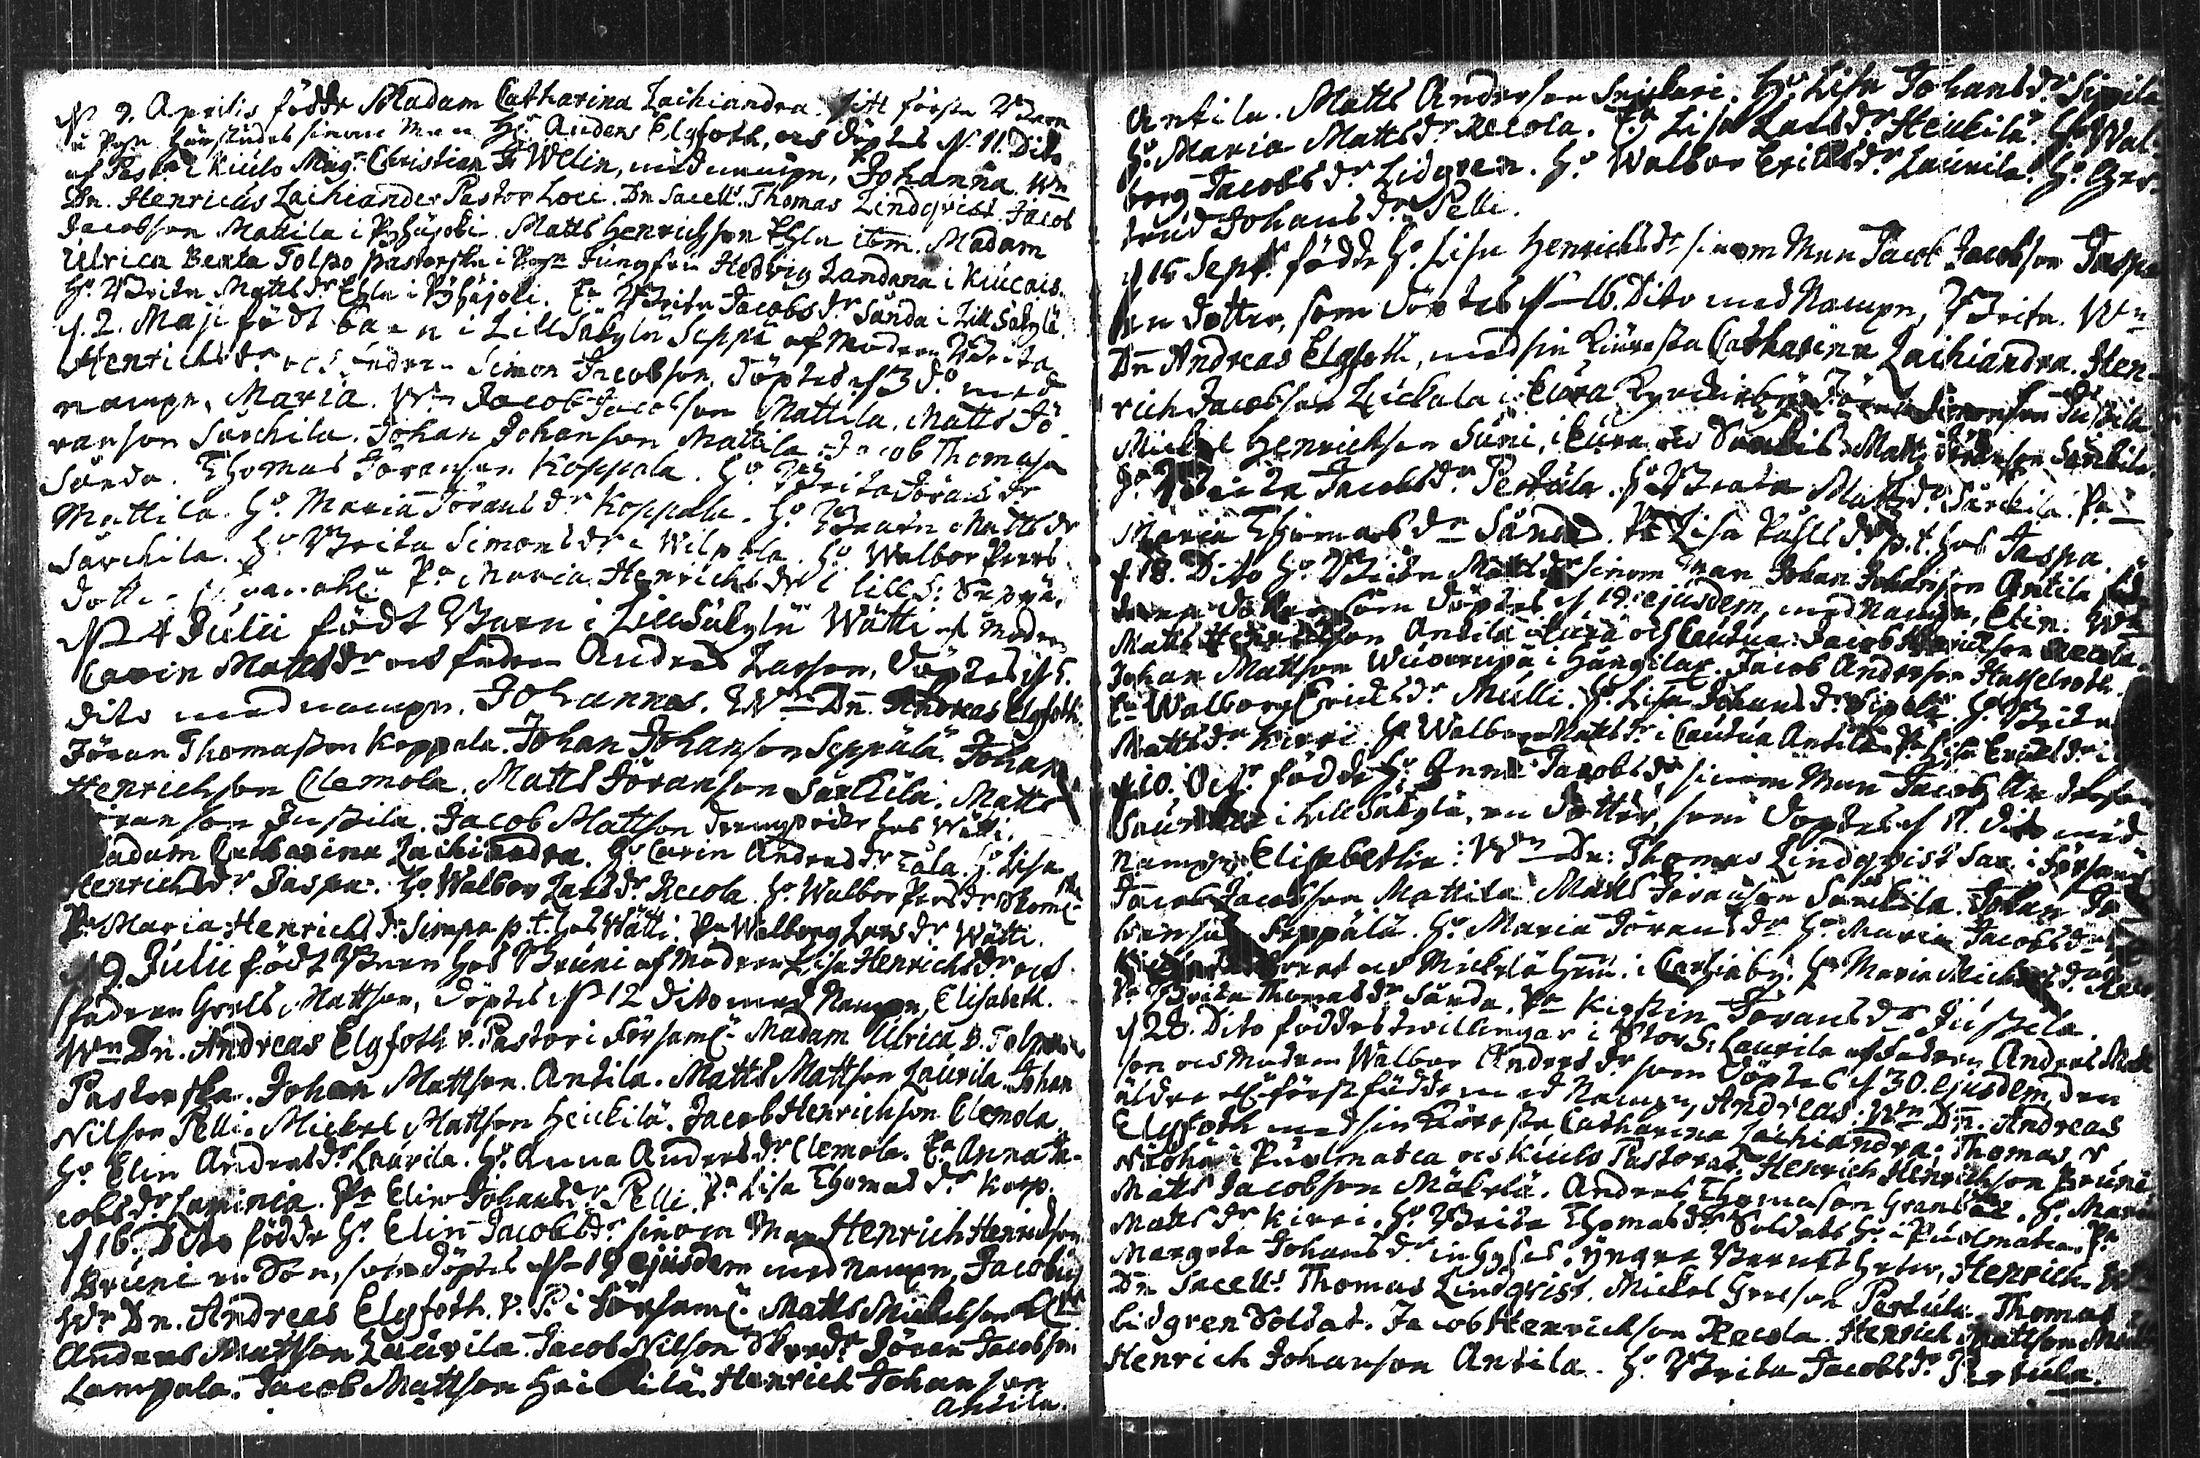 9. Aprilis födde Madam Catharina Laihiandra sitt första Barn
sinom Man Hr. Anders Elgfoth, och döptes d. 11. Dito
af Past. i Kiulo Mag. Christian Welin, med nampn, Johanna. Wn
Dn. Henricus Laihiander Pastor Loci. Dn Sacell. Thomas Lindqvist. Jacob
Jacobson Mattila i Pyhäjoki. Matts Henrichson Ehla ibm. Madam
Ulrica Beata Tolpo Pastorska i Jungfru Hedvig Zandana i Kiucais.
Ho. Brita Mattsdr Ehla i Pyhäjoki. Brita Jacobsdr Sånda i LillSäkylä.
d. 2. Maji födt Barn i LillSäkylä Seppä af Modren Brita
Henrichsdr och fadren Simon Jacobson, döptes d. 3 do med
nampn, Maria. Wn Jacob Jacobson Mattila. Matts Jö-
ranson Särckilä. Johan Johanson Mattila. Jacob Thomason
Sånda. Thomas Jöranson Koppala. Ho. Brita Jöransdr
Mattila. Ho. Maria Jöransdr Koppala. Ho. Mattsdr
Särckilä. Ho Brita Simonsdr i Wilpola. Ho. Walbor Pers
dotter Pa Maria Henrichsdr i lill S. Seppä.
4 Julii födt Barn i LillSäkylä Wätti af Modren
Carin Mattsdr och fadren Anders Larson, döptes d. 5.
dito med nampn. Johannes. Wn Dn. Andreas Elgfoth.
Jöran Thomasson Koppala. Johan Johanson Seppälä. Johan
Henrichson Clemola. Matts Jöranson Särckilä. Matts
Jöranson Jussila. Jacob Mattson hos Wätti.
Madam Catharina Laihiandra. Ho Carin Andersdr Tåla. Ho. Lisa
Henrichsdr Jaspa. Ho Walbor Larsdr Recola. Ho Walbor Persdr
Pa Maria Henrichsdr Simpa p.t. hos Wätti. Pa Walborg Larsdr Wätti.
9. Julii födt Barn hos Bruni af Modren Lisa Henrichsdr och
fadren Grels Mattson, döptes d. 12 dito med Nampn, Elisabeth.
Wn Dn. Andreas Elgfoth v. Pastor i Församl. Madam Ulrica B. Tolpo
Pastorska. Johan Mattson Antila. Matts Mattson Laurila. Johan
Nilson Pelli. Mickel Mattson Heickilä. Jacob Henrichson Clemola.
Ho Elin Andersdr Laurila. Ho. Anna Andersdr Clemola. Ea Anna Ja-
cobsdr Laminia. Pa Elin Johansdr Pelli. Pa Lisa Thomasdr Korp.
d 16. Dito födde Ho. Elin Jacobsdr sinom Man Henrich Henrichson
Bruni en Son, som döptes d. 19 ejusdem med nampn, Jacobus
Wn Dn. Andreas Elgfoth. v. P. i Församl. Matts Mickelson
Anders Mattson Laurila. Jacob Nilson Skredr. Jöran Jacobson
Lampola. Jacob Mattson Heickilä. Henrich Johanson
Antila.
Antila. Matts Anderson Ho Lisa Johansdr Sipilä
Ho. Maria Mattsdr Recola. Ea Lisa Larsdr Heickilä. Ho. Wal-
borg Jacobsdr Lidgren. Ho Walbor Ericksdr Laurila. Ho. Ger-
trud Johansdr Pelli.
d 15 Sept. födde Ho. Lisa Henrichsdr sinom Man Jacob Jacobson Jaspa
en dotter, som döptes d. 16. Dito med Nampn, Brita. Wn
Dn Andreas Elgfoth, med sin Käresta Catharina Laihiandra. Hen-
rich Jacobson Leickola i Eura Jöran Simonson Jussila
Mickel Henrichson Suni, i Eura Matts Jöranson Särckilä.
Ho. Brita Jacobsdr Pertula. Ho Mattsdr. Särckilä. Pa
Maria Thomasdr Sånda. Pa Lisa Påhlsdr p.t. hos Jaspa.
d. 18. Dito Ho Brita Mattsdr sinom Man Johan Johanson Antila
en dotter som döptes d 19. ejusdem, med Nampn, Elin. Wn
Matts Henrichson Antila i Eura och Cautua. Jacob Henrichson Recola.
Johan Mattson i Jacob Anderson Hasselroth.
Ea Walborg Ericksdr Mulli. Ho. Lisa Johansdr Sipilä. Ho. Brita
Mattsdr Kirri. Ho Walbor Mattsdr i Cautua Antila. Pa Lisa Ericksdr
d 10. Octr. födde Ho. Anna Jacobsdr sinom Man Jacob Anderson
i LillSäkylä, en Dotter, som döptes d 11. Dito med
Nampn, Elisabetha. Wn Dn. Thomas Lindqvist Sac. i Församl
Jacob Jacobson Mattila. Matts Jöranson Särckilä. Johan Jo-
hanson Seppälä. Ho. Maria Jöransdr Ho Maria Jacobsdr
Maria Mickelsdr
Pa Brita Thomasdr Sånda. Pa Kirstin Jöransdr Jussila.
d 28. Dito föddes twillingar i Stor S. Laurila af fadren Anders Matt-
son och Modren Walbor Andersdr som döptes d 30. ejusdem, den
äldre först födde med Nampn, Andreas. Wn Dn. Andreas
Elgfoth med sin Käresta Catharina Laihiandra. Thomas
i Puolmatca och Kiulo Pastorat. Henrich Henrichson Bruni
Matts Jacobson Mäkelä. Anders Thomason Ho. Maria
Mattsdr Kirri. Ho Brita Thomasdr Soldats Ho i Puolmatca. Pa
Margeta Johansdr inhyses. Yngre Barnet heter, Henrich. Wn
Dn Sacell. Thomas Lindqvist. Mickel Pertula. Thomas
Lidgren Soldat. Jacob Henrichson Recola. Henrich Mattson
Henrich Johanson Antila. Ho. Brita Jacobsdr Pertula.